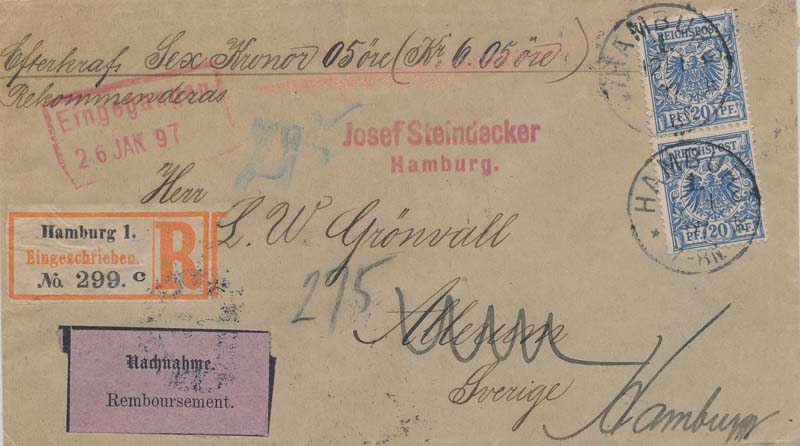 Efterkraf Sex Kronor 05 öre (Kr. 6.05 öre)
Rekommenderas
Eingegangen
26 JAN 97
Josef Steindecker
Hamburg.
Herr
L. W. Grönvall
Sverige
Hamburg
215
Hamburg 1.
Eingeschrieben.
No. 299. c
R
Nachnahme.
Remboursement.
REICHSPOST
PF 20 PF.
HAMBURG
REICHSPOST
PF 20 PF.
HAMBURG